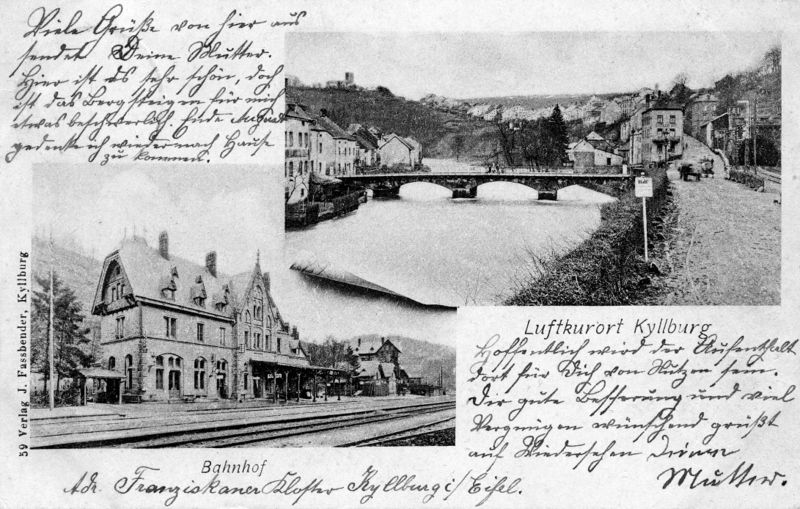 Viele Grüße von hier aus
sendet Deine Mutter.
Hier ist es sehr schön, doch
ist das Bergsteigen für mich
etwas beschwerlich, Ende August
gedenke ich wieder nach Hause
zu kommen.
59 Verlag J. Fassbender, Kyllburg
Luftkurort Kyllburg
Hoffentlich wird der Aufenthalt
dort für Dich von Nutzen sein.
Dir gute Besserung und viel
Vergnügen wünschend grüßt
auf Wiedersehen Deine
Mutter.
Bahnhof
Adr. Franziskaner Kloster Kyllburg i/ Eifel.